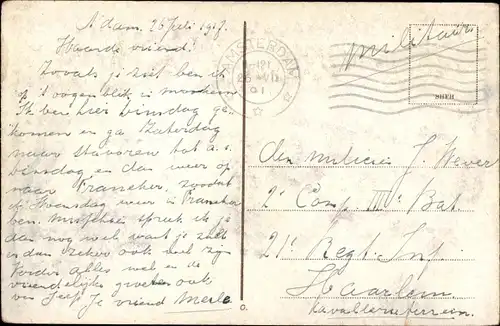 A'dam, 26 Juli 1917.
Waarde vriend!
Zooals je ziet ben ik
op 't oogenblik in
Ik ben hier Dinsdag ge-
komen en ga Zaterdag
naar Stavoren tot a.s.
Dinsdag en dan weer op
naar Franeker, zoodat
ik Woensdag weer in Franeker
ben. Misschien spreek ik je
dan nog wel want je zult
er dan zeker ook wel zijn
Verder alles wel en de
vriendelijke groeten ook
van Jeep Je vriend Merle
AMSTERDAM
militair
SHEB
den milicien J. Wever
2e Comp. IIIe Bat
21e Regt. Inf.
Haarlem
Kavallerieterrein.